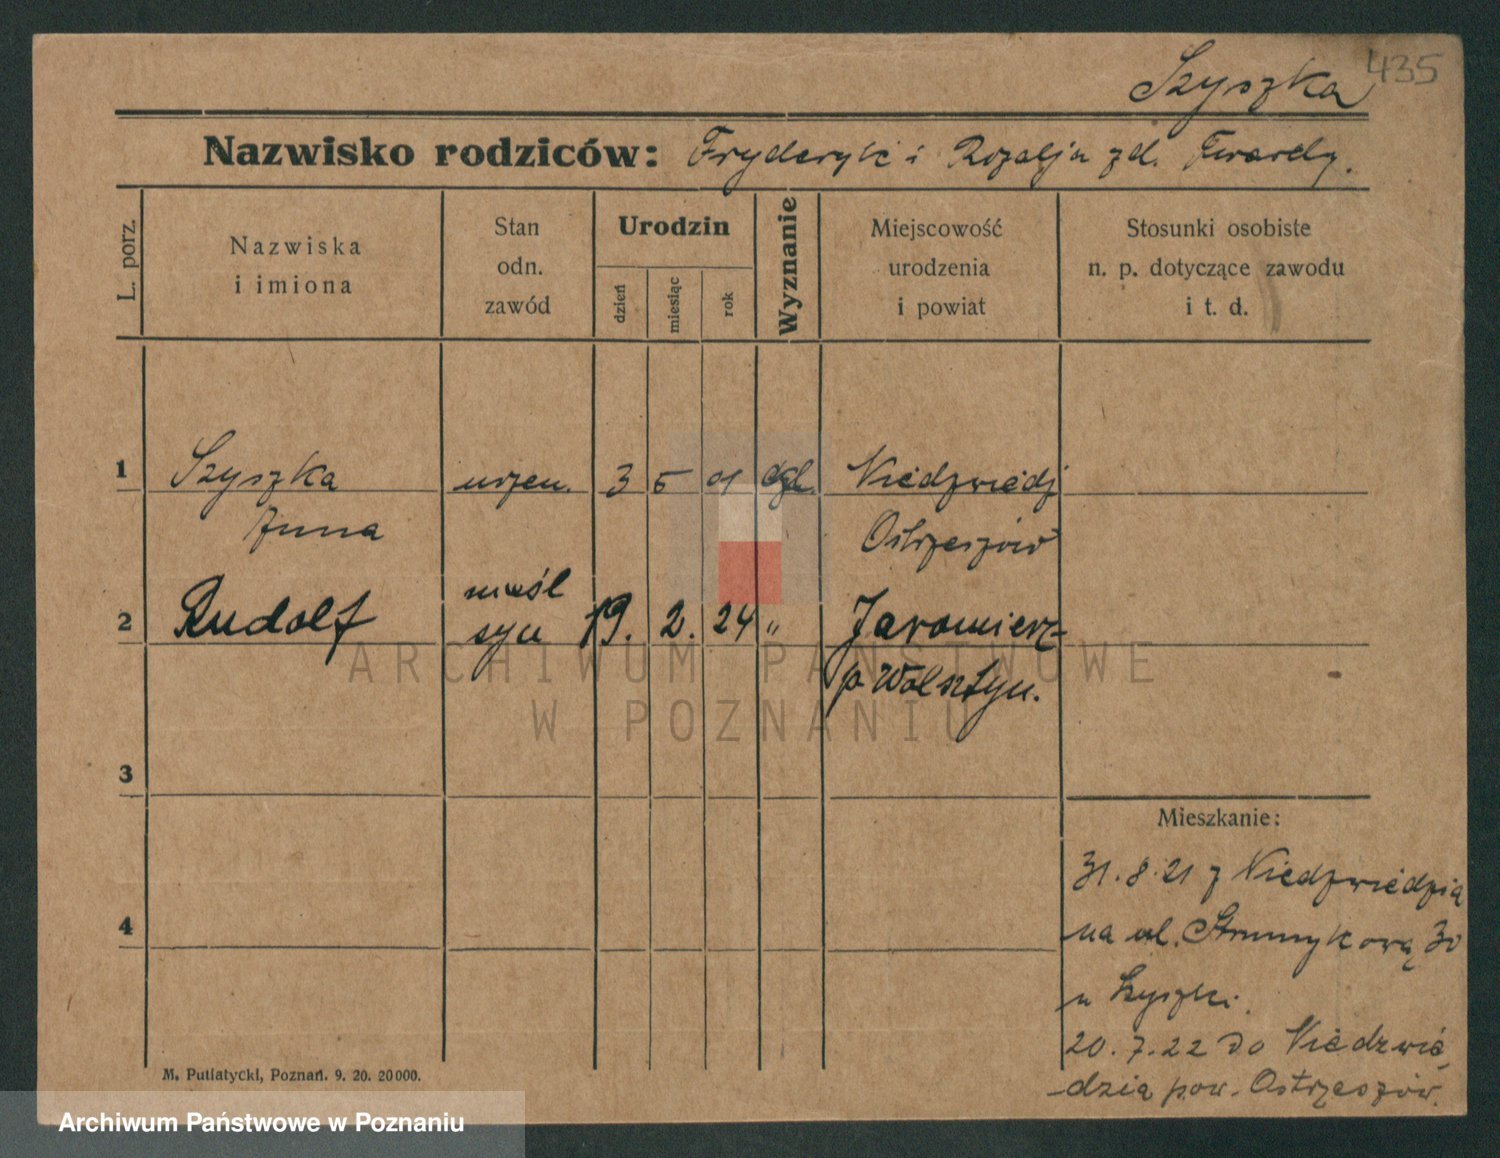 435
Szyszka
Nazwisko rodziców: Fryderyk i Rozalja zd. Twardy.
L. porz.
Nazwiska
i imiona
Stan
odn.
zawód
Urodzin
dzień
miesiąc
rok
Wyznanie
Miejscowość
urodzenia
i powiat
Stosunki osobiste
n. p. dotyczące zawodu
i t. d.
1 Szyszka 3 5 01 Niedzwiedz
Anna Ostrzeszów
2 Rudolf nieśl syn 19. 2. 24 " Jaromierz
p Wolsztyn.
3
4
Mieszkanie:
31.8.21 z Niedzwiedzia
na ul. Strumykową 30
u Szyszki.
20.7.22 do Niedzwie
dzia pow. Ostrzeszów.
M. Putiatycki, Poznań. 9. 20. 20000.
ARCHIWUM PAŃSTWOWE
W POZNANIU
Archiwum Państwowe w Poznaniu